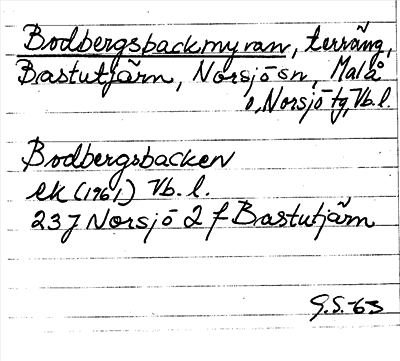 Bodbergsbackmyran, terräng,
Bastutjärn, Norsjö sn, Malå
o. Norsjö tg, Vb. l.
Bodbergsbacken
ek (1961) Vb. l.
237 Norsjö 2 f Bastutjärn
G.S.-63